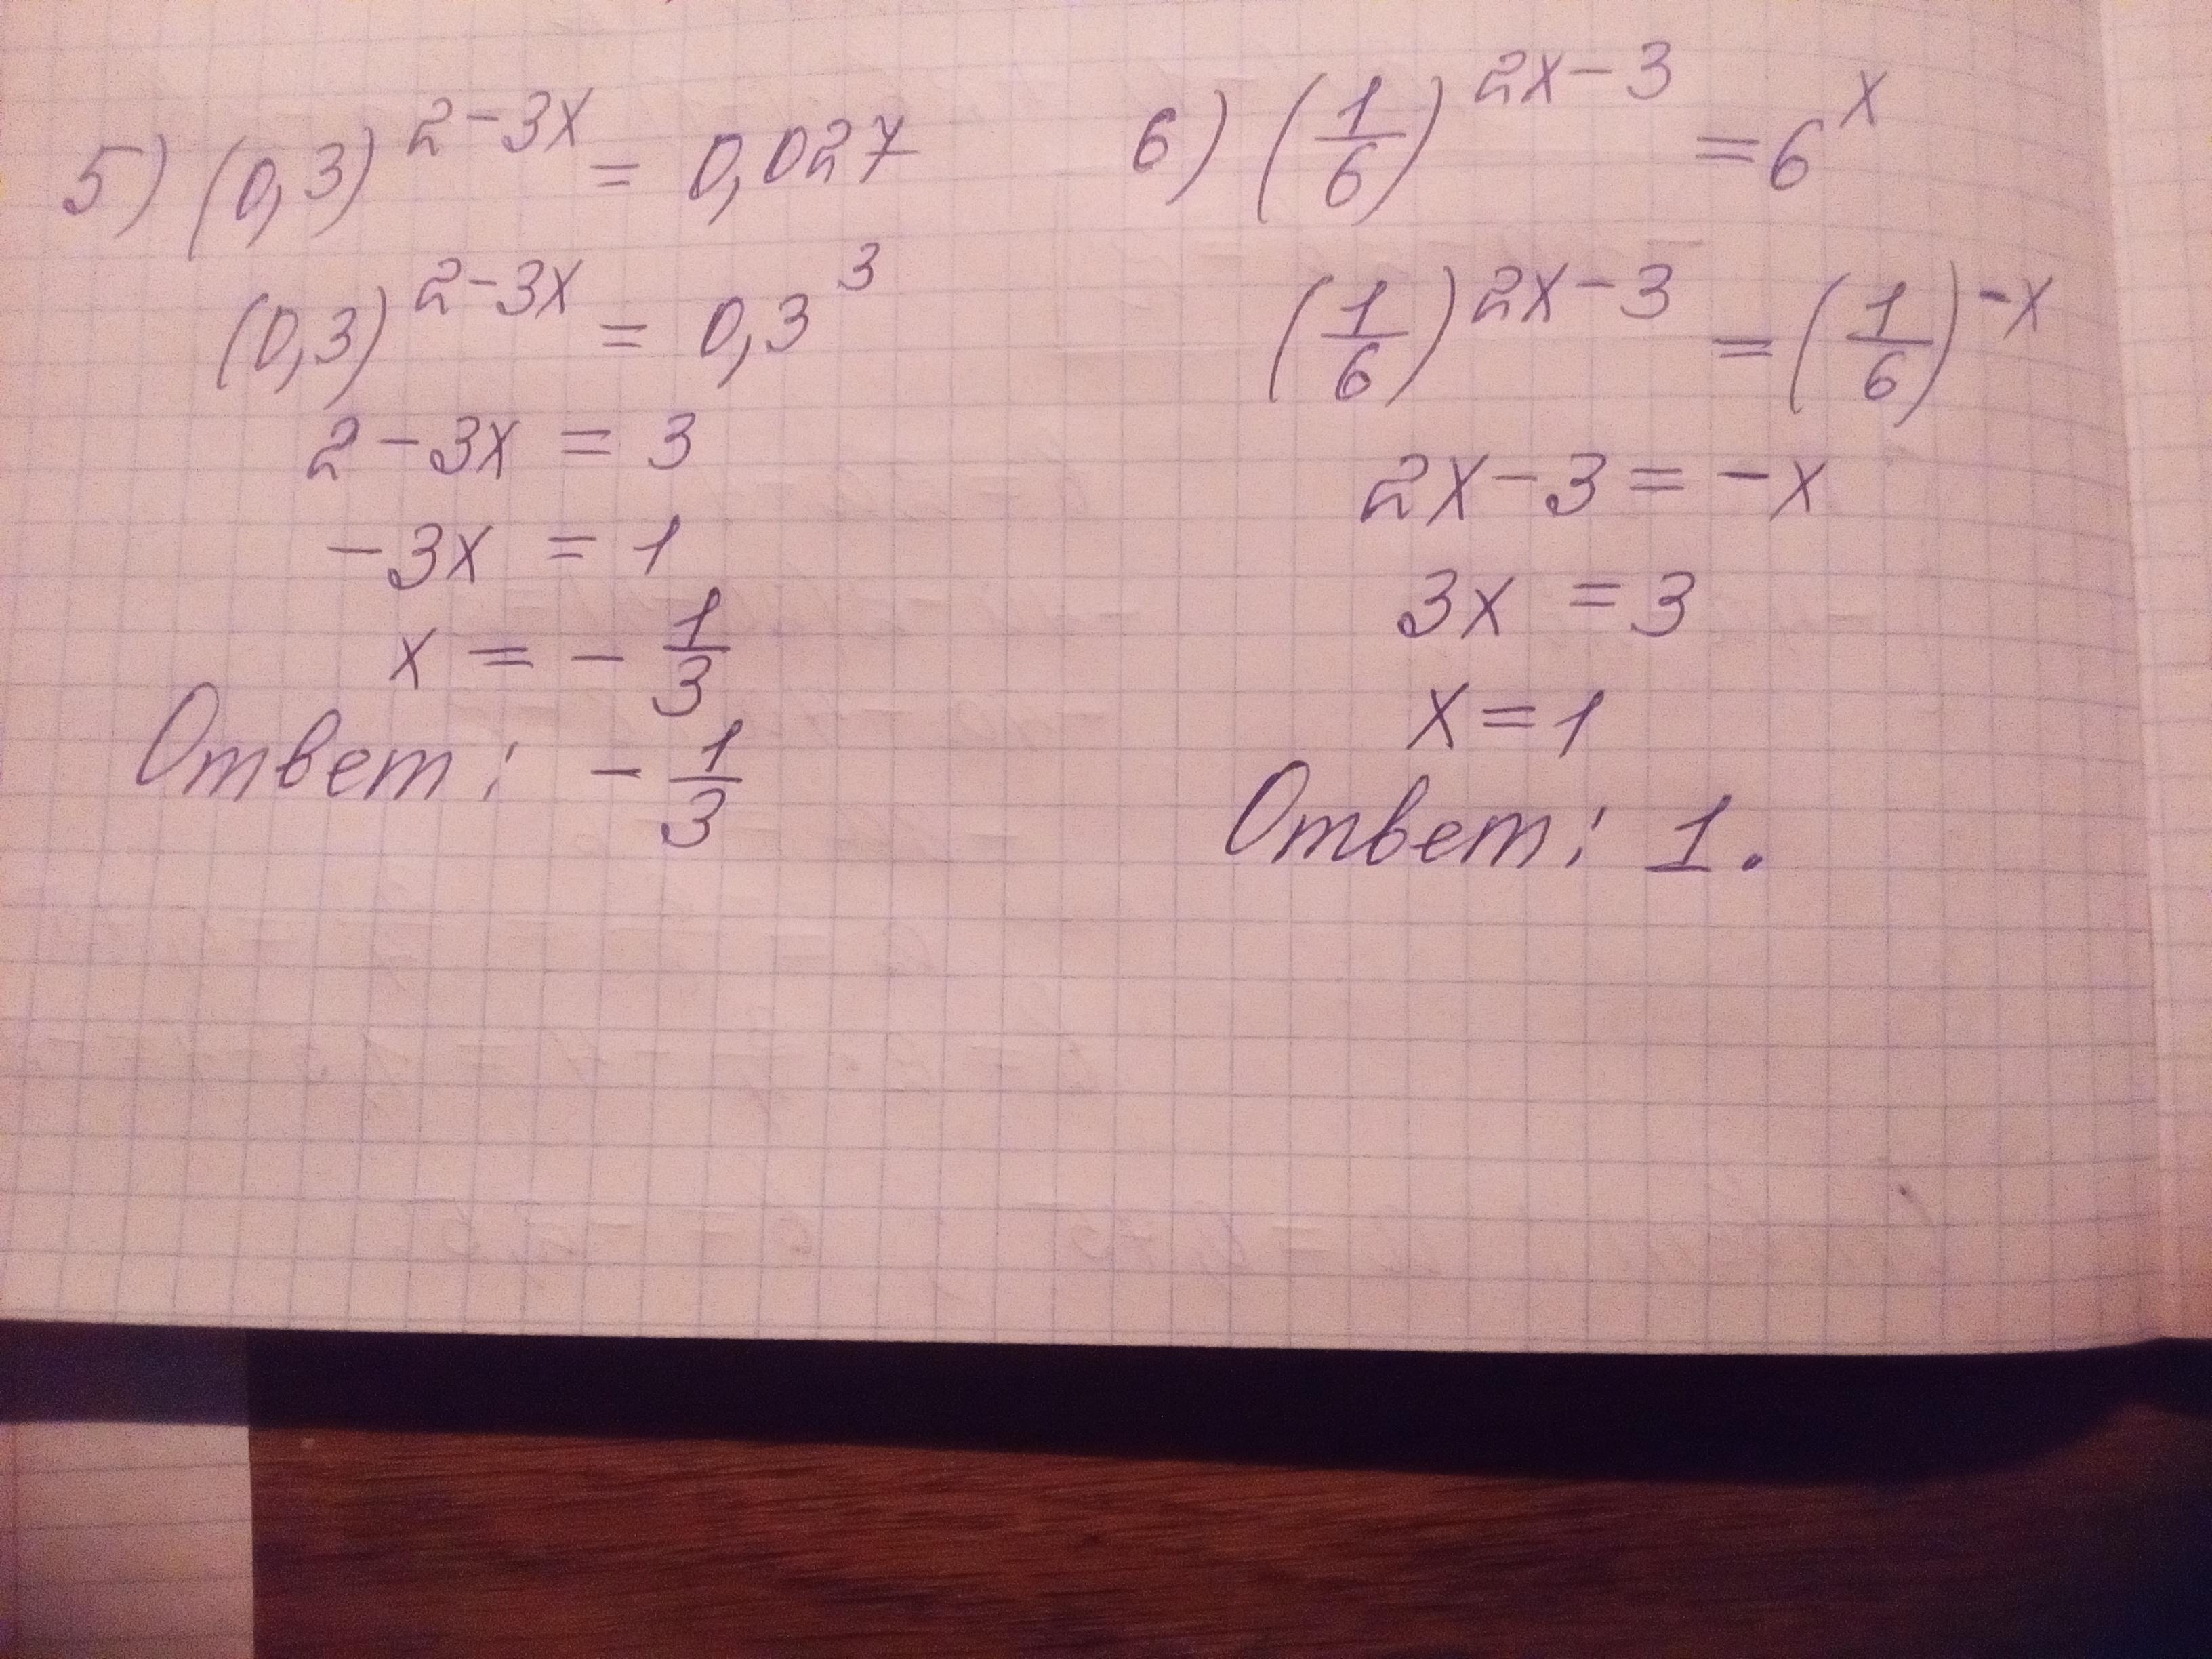 5) (0,3)^(2-3x) = 0,027
(0,3)^(2-3x) = 0,3^3
2-3x = 3
-3x = 1
x = - 1/3
Ответ: - 1/3
6) (1/6)^(2x-3) = 6^x
(1/6)^(2x-3) = (1/6)^(-x)
2x-3 = -x
3x = 3
x = 1
Ответ: 1.